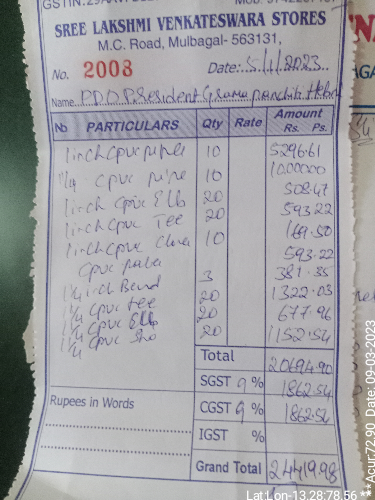 SREE LAKSHMI VENKATESWARA STORES
M.C. Road, Mulbagal- 563131,
No. 2003 Date: 5/1/2023
Name P.D.O President Grama
No PARTICULARS Qty Rate Amount
Rs. Ps.
1 inch cpvc 10 5296.61
1 1/4 cpvc pipe 10 10000.00
1 inch cpvc Elb 20 508.47
1 inch cpvc Tee 20 593.22
1 inch cpvc 10 169.50
cpvc 593.22
1 1/4 inch Bend 3 381.35
1 1/4 cpvc Tee 20 1322.03
1 1/4 cpvc Elb 20 677.96
1 1/4 cpvc 20 1152.54
Total 20694.90
SGST 9 % 1862.54
Rupees in Words CGST 9 % 1862.54
IGST %
Grand Total 24419.98
Lat Lon-13.28:78.56 ** Acur:72.90 Date: 09-03-2023